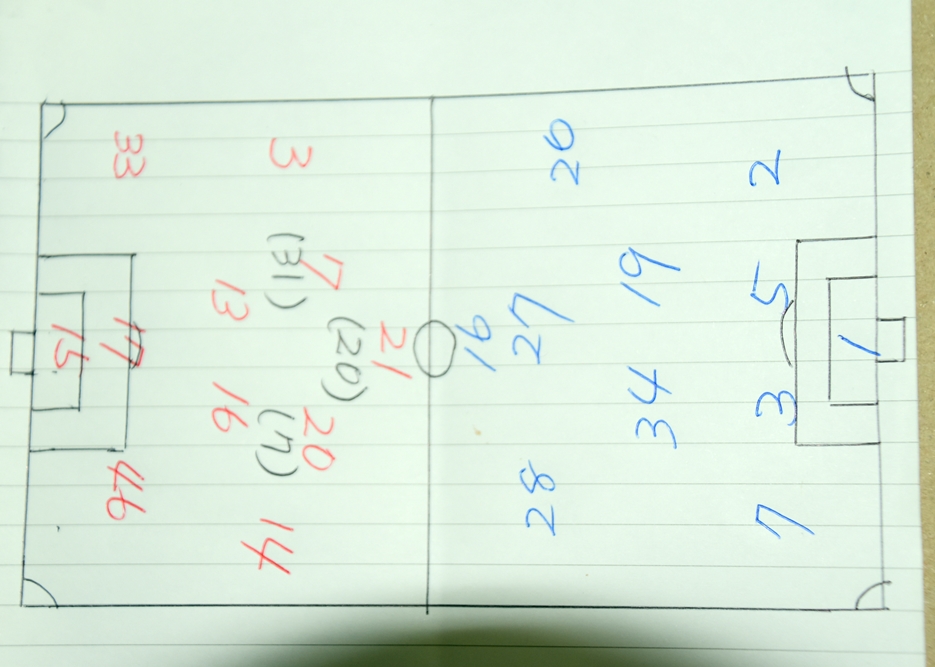 15
46 17 33
16 13
14 3
(7) (31)
20 7
(20)
21
16
28 27 20
34 19
7 3 5 2
1